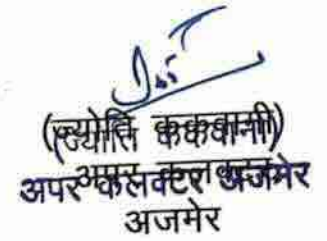 (ज्योति ककवानी)
अपर कलक्टर अजमेर
अजमेर